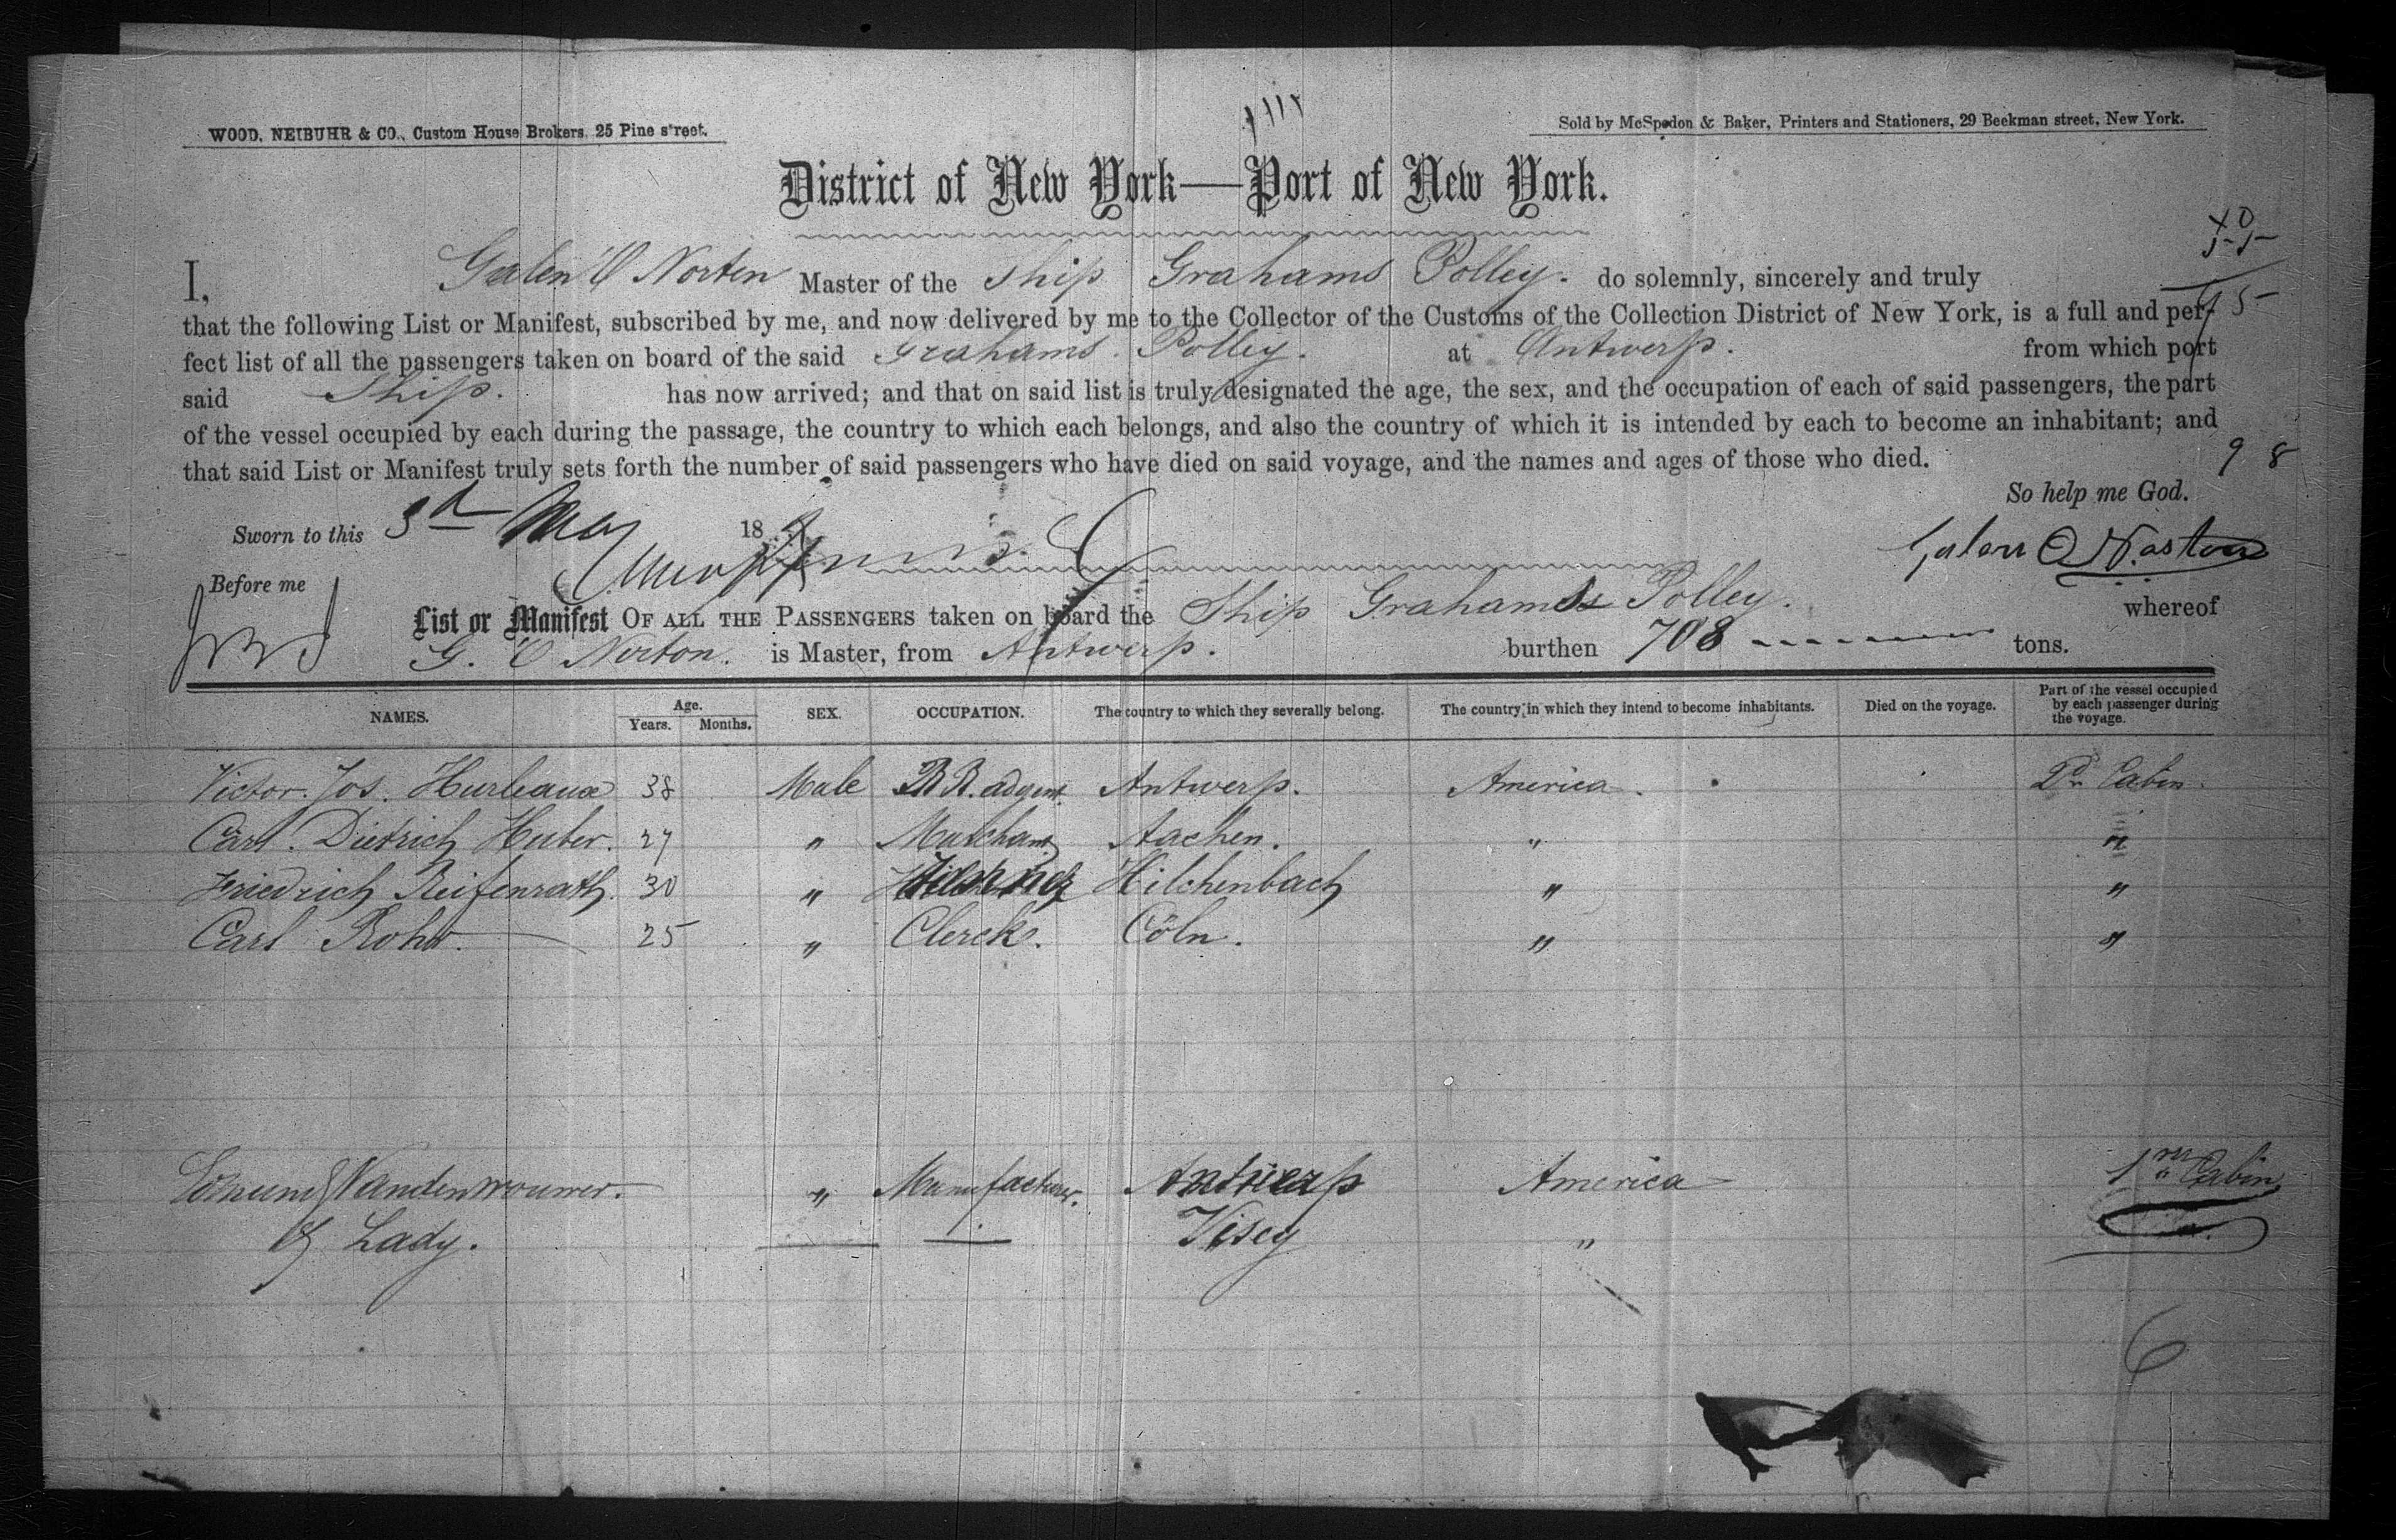 WOOD, NEIBUHR & CO., Custom House Brokers. 25 Pine street.
Sold by McSpedon & Baker, Printers and Stationers, 29 Beekman street, New York.
District of New York—Port of New York.
I, Galen O Norten Master of the Ship Grahams Polley. do solemnly, sincerely and truly
that the following List or Manifest, subscribed by me, and now delivered by me to the Collector of the Customs of the Collection District of New York, is a full and per-
fect list of all the passengers taken on board of the said Grahams. Polley. at Antwerp. from which port
said Ship. has now arrived; and that on said list is truly designated the age, the sex, and the occupation of each of said passengers, the part
of the vessel occupied by each during the passage, the country to which each belongs, and also the country of which it is intended by each to become an inhabitant; and
that said List or Manifest truly sets forth the number of said passengers who have died on said voyage, and the names and ages of those who died.
98
So help me God.
Sworn to this 3d May 18
Galen O Norton
Before me
List or Manifest OF ALL THE PASSENGERS taken on board the Ship Grahams Polley. whereof
G. O Norton. is Master, from Antwerp. burthen 708 tons.
NAMES. Age. Years. Months. SEX. OCCUPATION. The country to which they severally belong. The country in which they intend to become inhabitants. Died on the voyage. Part of the vessel occupied by each passenger during the voyage.
Victor. Jos. Hurleaux 38 Male Antwerp. America. 2d Cabin.
Carl. Dietrich Huber. 27 " Marchant Aachen. " "
Friedrich Reifenrath. 30 " Hilchenbach " "
Carl Rohr. 25 " Clerck. Cöln. " "
Edmund Vandenwouwer. " Manufacturer. Antwerp America 1 Cabin
& Lady. Visey "
6